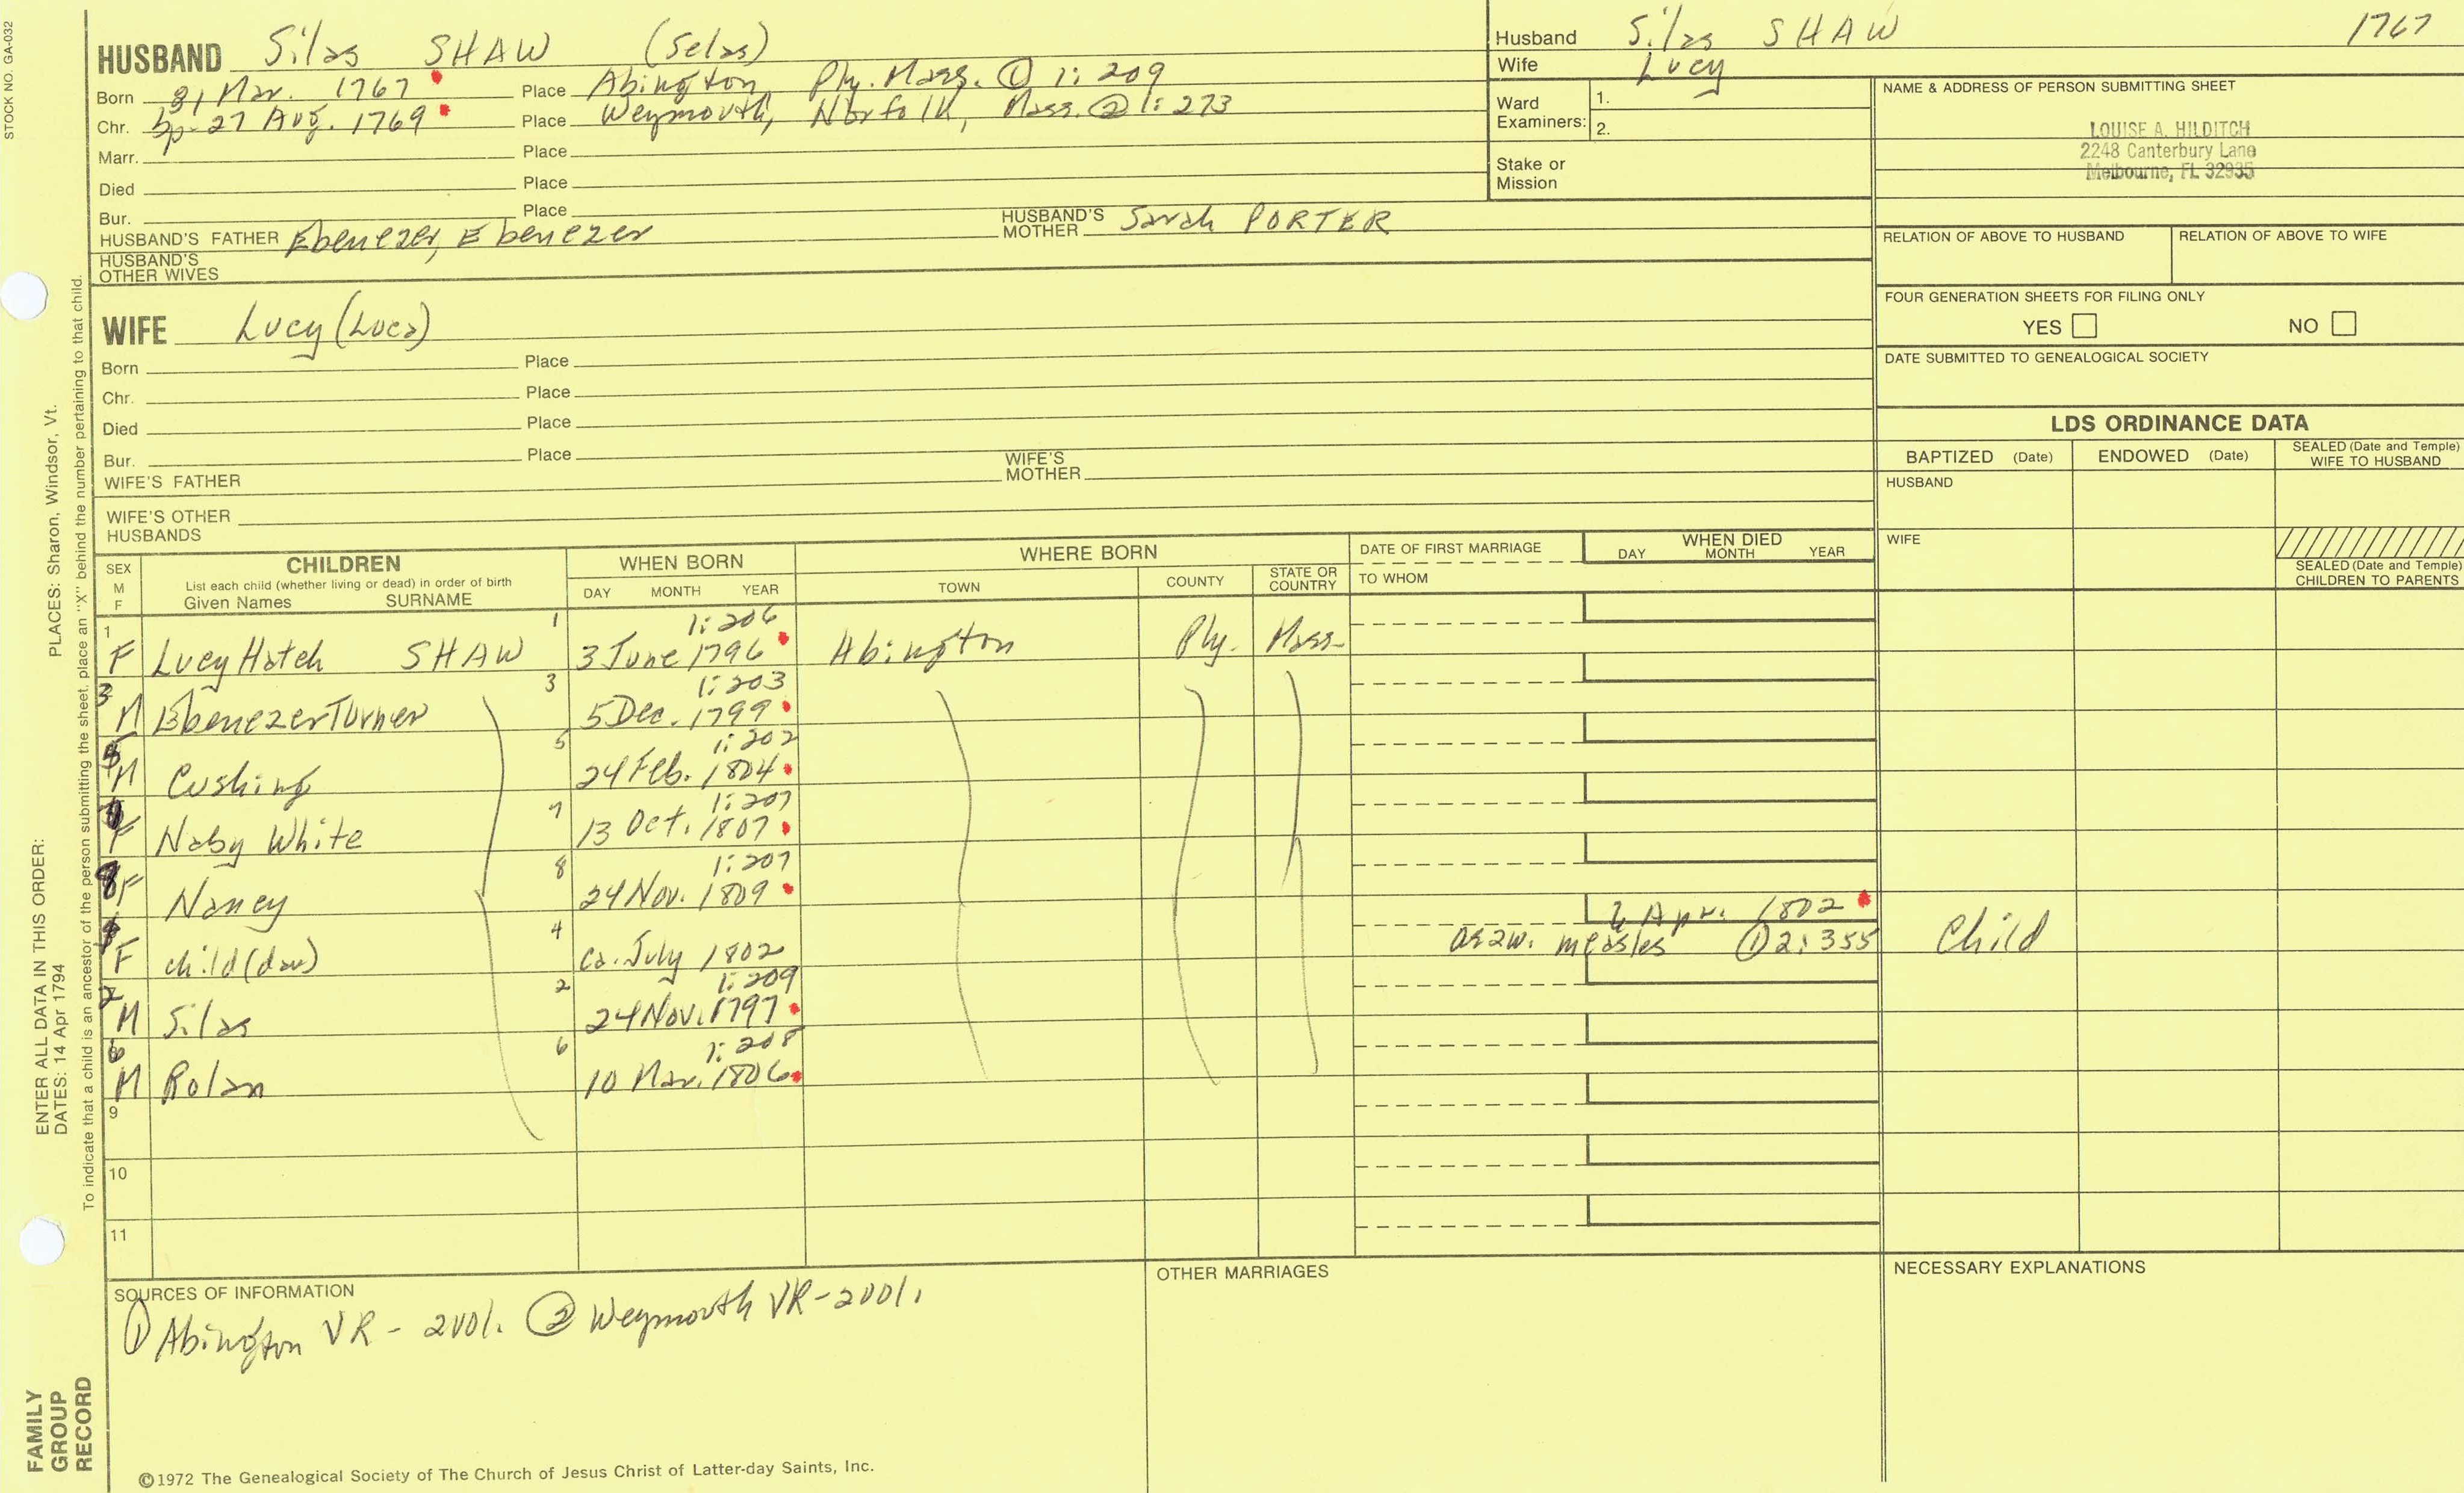 STOCK NO. GA-032
HUSBAND Silas SHAW (Selas)
Born 31 Mar. 1767 Place Abington, Ply. Mass. ① 1: 209
Chr. bp. 27 Aug. 1769 Place Weymouth, Norfolk, Mass. ② 1: 273
Marr. Place
Died Place
Bur. Place
HUSBAND'S FATHER Ebenezer, Ebenezer HUSBAND'S MOTHER Sarah PORTER
HUSBAND'S OTHER WIVES
Husband Silas SHAW 1767
Wife Lucy
Ward Examiners: 1.
2.
Stake or Mission
NAME & ADDRESS OF PERSON SUBMITTING SHEET
LOUISE A. HILDITCH
2248 Canterbury Lane
Melbourne, FL 32935
RELATION OF ABOVE TO HUSBAND RELATION OF ABOVE TO WIFE
FOUR GENERATION SHEETS FOR FILING ONLY
YES NO
DATE SUBMITTED TO GENEALOGICAL SOCIETY
WIFE Lucy (Luca)
Born Place
Chr. Place
Died Place
Bur. Place
WIFE'S FATHER WIFE'S MOTHER
WIFE'S OTHER HUSBANDS
LDS ORDINANCE DATA
BAPTIZED (Date) ENDOWED (Date) SEALED (Date and Temple) WIFE TO HUSBAND
HUSBAND
WIFE
SEALED (Date and Temple) CHILDREN TO PARENTS
SEX M F
CHILDREN
List each child (whether living or dead) in order of birth
Given Names SURNAME
WHEN BORN
DAY MONTH YEAR
WHERE BORN
TOWN COUNTY STATE OR COUNTRY
DATE OF FIRST MARRIAGE
TO WHOM
WHEN DIED
DAY MONTH YEAR
1 1 1: 206
F Lucy Hatch SHAW 3 June 1796 Abington Ply. Mass.
3 3 1: 203
M Ebenezer Turner 5 Dec. 1799
5 5 1: 202
M Cushing 24 Feb. 1804
7 1: 207
F Naby White 13 Oct. 1807
8 8 1: 207
F Nancy 24 Nov. 1809
4 2 Apr. 1802
F child (dau) ca. July 1802 measles ① 2: 355 Child
2 2 1: 209
M Silas 24 Nov. 1797
6 6 1: 208
M Rolan 10 Mar. 1806
9
10
11
SOURCES OF INFORMATION
① Abington VR - 2vol. ② Weymouth VR - 2vol.
OTHER MARRIAGES
NECESSARY EXPLANATIONS
©1972 The Genealogical Society of The Church of Jesus Christ of Latter-day Saints, Inc.
FAMILY GROUP RECORD
ENTER ALL DATA IN THIS ORDER:
DATES: 14 Apr 1794
PLACES: Sharon, Windsor, Vt.
To indicate that a child is an ancestor of the person submitting the sheet, place an "X" behind the number pertaining to that child.